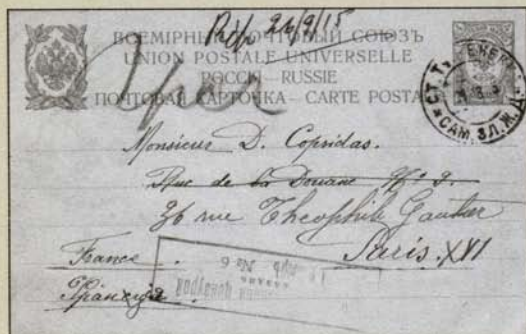 Rép 26/9/15
ВСЕМІРНЫЙ ПОЧТОВЫЙ СОЮЗЪ
UNION POSTALE UNIVERSELLE
РОССІЯ – RUSSIE
ПОЧТОВАЯ КАРТОЧКА – CARTE POSTA
СТ. Т
САМ. ЗЛ. Ж. Д.
Monsieur D. Copsidas.
Rue de la Douane No 9.
36 rue Theophile Gautier
Paris. XVI
France.
Франція
№ 6